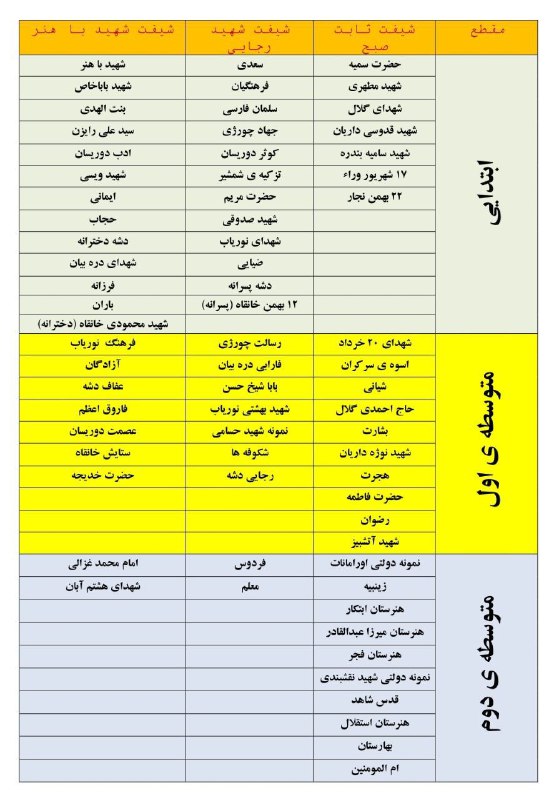 مقطع شیفت ثابت صبح شیفت شهید رجایی شیفت شهید با هنر
ابتدایی
حضرت سمیه سعدی شهید با هنر
شهید مطهری فرهنگیان شهید باباخاص
شهدای گلال سلمان فارسی بنت الهدی
شهید قدوسی داریان جهاد چورژی سید علی رایزن
شهید سامیه بندره کوثر دوریسان ادب دوریسان
۱۷ شهریور وراء تزکیه ی شمشیر شهید ویسی
۲۲ بهمن نجار حضرت مریم ایمانی
شهید صدوقی حجاب
شهدای نوریاب دشه دخترانه
ضیایی شهدای دره بیان
دشه پسرانه فرزانه
۱۲ بهمن خانقاه (پسرانه) باران
شهید محمودی خانقاه (دخترانه)
متوسطه ی اول
شهدای ۲۰ خرداد رسالت چورژی فرهنگ نوریاب
اسوه ی سرکران فارابی دره بیان آزادگان
شیانی بابا شیخ حسن عفاف دشه
حاج احمدی گلال شهید بهشتی نوریاب فاروق اعظم
بشارت نمونه شهید حسامی عصمت دوریسان
شهید نوژه داریان شکوفه ها ستایش خانقاه
هجرت رجایی دشه حضرت خدیجه
حضرت فاطمه
رضوان
شهید آتشبیز
متوسطه ی دوم
نمونه دولتی اورامانات فردوس امام محمد غزالی
زینبیه معلم شهدای هشتم آبان
هنرستان ابتکار
هنرستان میرزا عبدالقادر
هنرستان فجر
نمونه دولتی شهید نقشبندی
قدس شاهد
هنرستان استقلال
بهارستان
ام المومنین